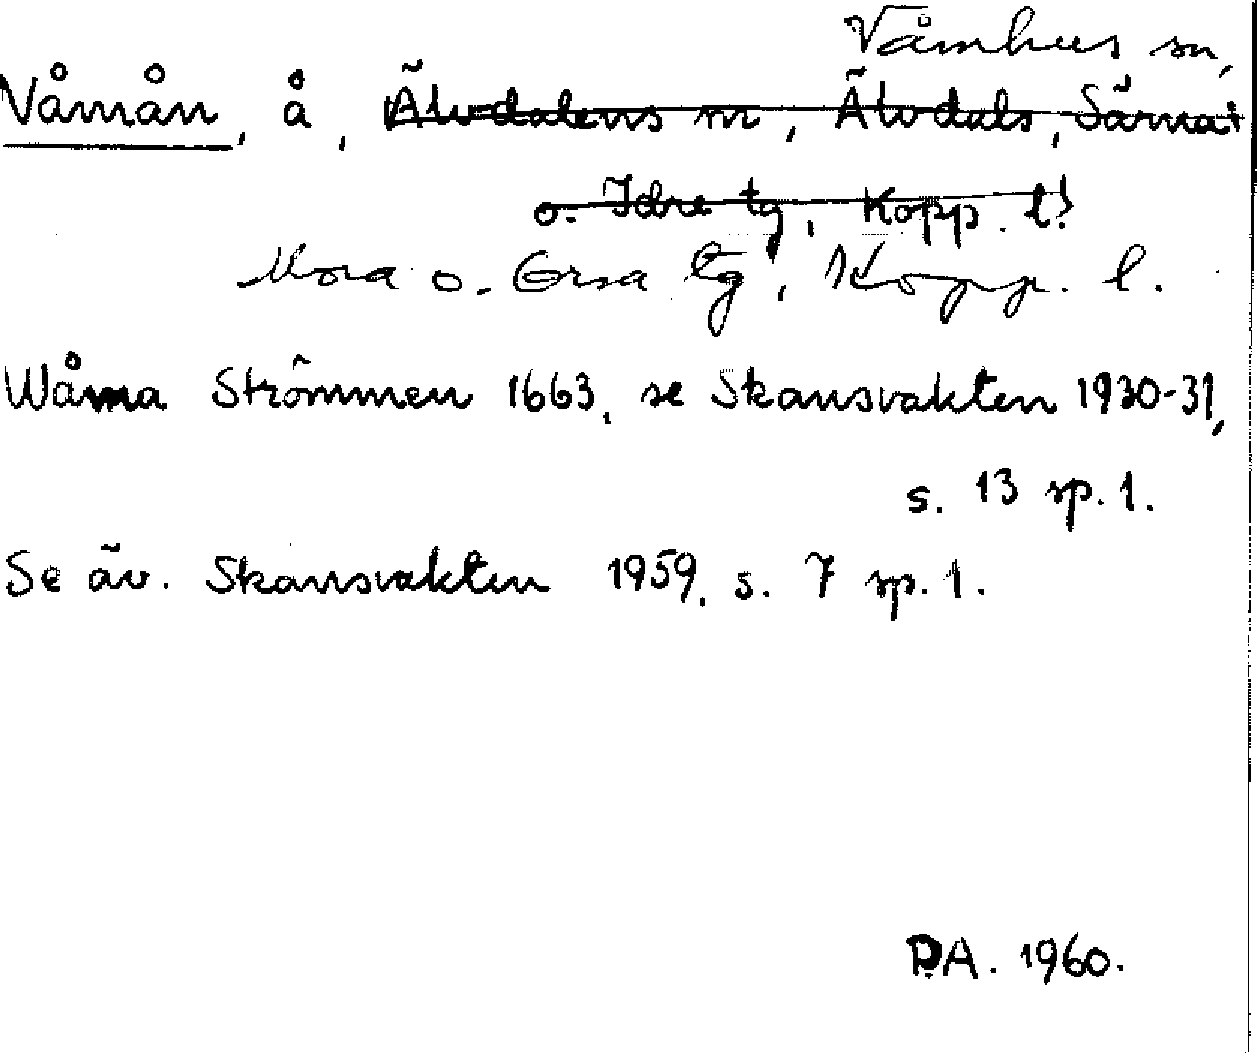 Våmhus sn,
Våmån, å, Älvdalens sn, Älvdals, Särna
o. Idre tg, Kopp. l.
Mora o. Orsa tg, Kopp. l.
Wåma Strömmen 1663, se Skansvakten 1930-31,
s. 13 sp. 1.
Se äv. Skansvakten 1959, s. 7 sp. 1.
DA. 1960.